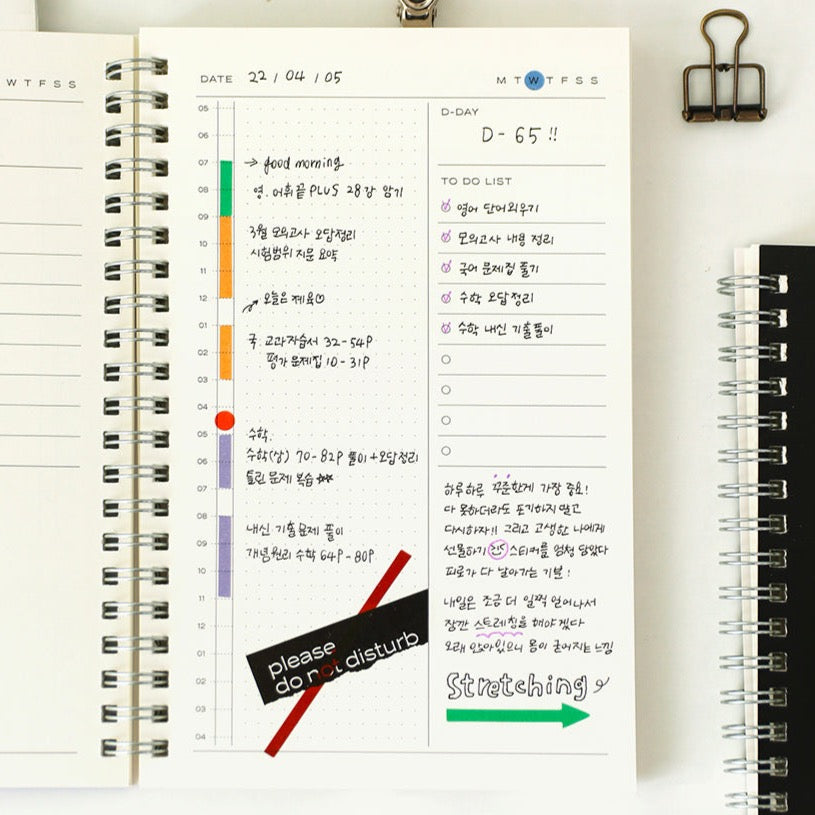 W T F S S
DATE 22 / 04 / 05
M T W T F S S
05
06
07
08
09
10
11
12
01
02
03
04
05
06
07
08
09
10
11
12
01
02
03
04
→ good morning
영. 어휘끝 PLUS 28강 암기
3월 모의고사 오답정리
시험범위 지문 요약
오늘은 제육
국. 교과자습서 32-54P
평가문제집 10-31P
수학.
수학(상) 70-82P 풀이+오답정리
틀린 문제 복습
내신 기출문제 풀이
개념원리 수학 64P-80P
please
do not disturb
D-DAY
D-65!!
TO DO LIST
영어 단어외우기
모의고사 내용 정리
국어 문제집 풀기
수학 오답정리
수학 내신 기출풀이
하루하루 꾸준한게 가장 중요!
다 못하더라도 포기하지 말고
다시하자!! 그리고 고생한 나에게
선물하기 스티커를 엄청 담았다
피로가 다 날아가는 기분!
내일은 조금 더 일찍 일어나서
잠깐 스트레칭을 해야겠다
오래 앉아있으니 몸이 굳어지는 느낌
Stretching